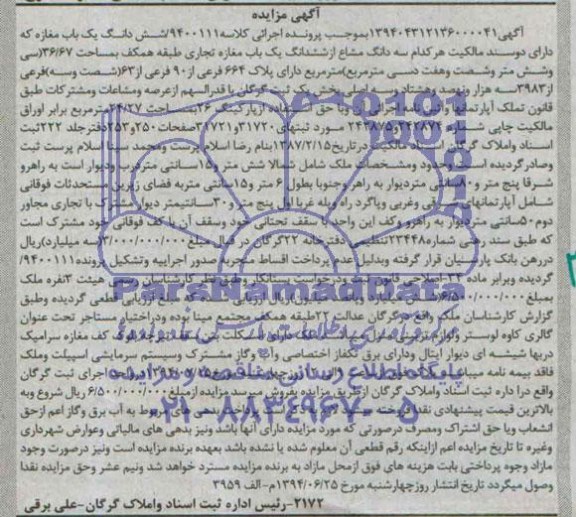 آگهی مزایده
آگهی ۱۳۹۴۰۴۳۱۲۱۳۶۰۰۰۰۴۱بموجب پرونده اجرائی کلاسه ۹۴۰۰۱۱۱/شش دانگ یک باب مغازه که
دارای دوسند مالکیت هرکدام سه دانگ مشاع ازششدانگ یک باب مغازه تجاری طبقه همکف بمساحت ۳۶/۶۷(سی
وشش متر وشصت وهفت دسی مترمربع)مترمربع دارای پلاک ۶۶۴ فرعی از ۹۰ فرعی از ۶۳(شصت وسه)فرعی
از۳۹۸۳سه هزار ونهصد وهشتاد وسه اصلی بخش یک ثبت گرگان با قدرالسهم ازعرصه ومشاعات ومشترکات طبق
قانون تملک آپارتمانها اجرائی وبا حق استفاده ازپارکینگ ۲۶ بمساحت ۲۴/۲۷مترمربع برابر اوراق
مالکیت چاپی شماره و مورد ثبتهای ۳۱۷۲۰و۳۱۷۲۱صفحات ۲۵۰و۲۵۳دفترجلد ۲۲۲ثبت
اسناد واملاک گرگان اسناد مالکیت درتاریخ ۱۳۸۷/۲/۱۵بنام رضا اسلام پرست ومحمد سینا اسلام پرست ثبت
وصادرگردیده است وحدود ومشخصات ملک شامل شمالا شش متر و۱۵سانتی متردرب ودیوار است به راهرو
شرقا پنج متر و۸۰سانتی متردیوار به راهرو وجنوبا بطول ۶ متر و۱۵سانتی متربه فضای زیرین مستحدثات فوقانی
شامل آپارتمانهای وغربی وپاگرد راه وپله غربا اول پنج متر و۳۰سانتیمتر دیوار مشترک با تجاری مجاور
دوم ۵۰سانتی متر دیوار به راهرو وکف این واحد با سقف تحتانی خود وسقف آن با کف فوقانی خود مشترک است
که طبق سند رهنی شماره ۲۳۴۴۸تنظیمی دفترخانه ۲۲گرگان در قبال مبلغ ۳/۰۰۰/۰۰۰/۰۰۰(سه میلیارد)ریال
دررهن بانک پارسیان قرار گرفته وبدلیل عدم پرداخت اقساط منجربه صدور اجراییه وتشکیل پرونده ۹۴۰۰۱۱۱/
گردیده وبرابر ماده ۳۴ اصلاحی قانون ثبت ودرخواست بستانکار وطبق نظر کارشناسان رسمی هیئت ۳نفره ملک
بمبلغ ۶/۵۰۰/۰۰۰/۰۰۰ ریال ارزیابی که مبلغ ارزیابی قطعی گردیده وطبق
گزارش کارشناسان ملک واقع در گرگان عدالت ۲۲طبقه همکف مجتمع مینا بوده ودراختیار مستاجر تحت عنوان
گالری کاوه لوستر ولوازم تزیینی منزل دارای اسکلت بتنی کف مغازه سرامیک
دربها شیشه ای دیوار اپتال ودارای برق تکفاز اختصاصی وآب وگاز مشترک وسیستم سرمایشی اسپیلت وملک
فاقد بیمه نامه میباشد اجرای ثبت گرگان
واقع درا داره ثبت اسناد واملاک گرگان ازطریق مزایده بفروش میرسد مزایده ازمبلغ ۶/۵۰۰/۰۰۰/۰۰۰ ریال شروع وبه
بالاترین قیمت پیشنهادی نقدا فروخته میشود بدهی های مربوط به آب برق وگاز اعم ازحق
انشعاب ویا حق اشتراک ومصرف درصورتی که مورد مزایده دارای آنها باشد ونیز بدهی های مالیاتی وعوارض شهرداری
وغیره تا تاریخ مزایده اعم ازاینکه رقم قطعی آن معلوم شده یا نشده باشد بعهده برنده مزایده است ونیز درصورت وجود
مازاد وجوه پرداختی بابت هزینه های فوق ازمحل مازاد به برنده مزایده مسترد خواهد شد ونیم عشر وحق مزایده نقدا
وصول میگردد تاریخ انتشار روزچهارشنبه مورخ ۱۳۹۴/۰۶/۲۵م-الف ۳۹۵۹
۲۱۷۲-رئیس اداره ثبت اسناد واملاک گرگان-علی برقی
ParsNamadData
پایگاه اطلاع رسانی مناقصه و مزایده
۰۲۱-۸۸۳۴۹۶۷۰-۵